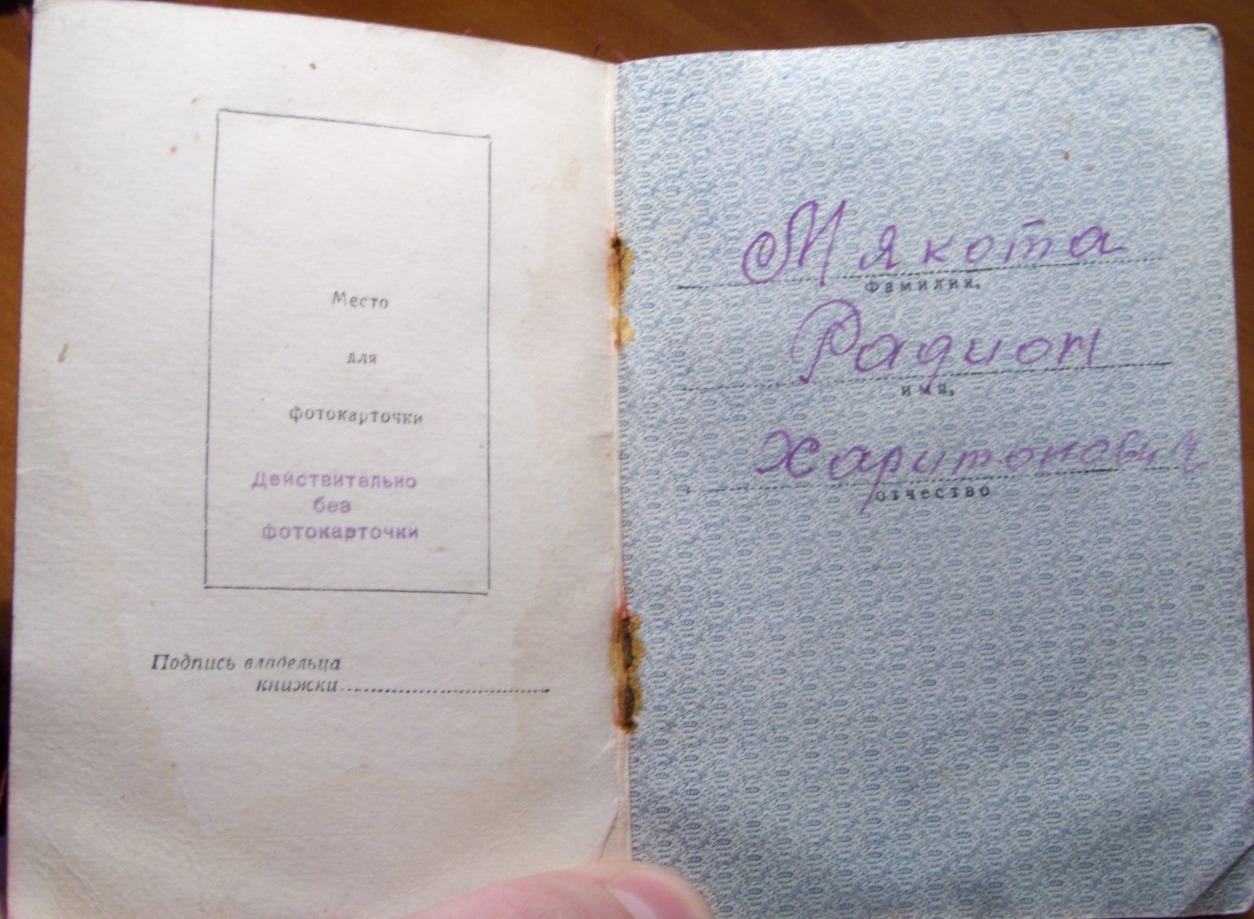 Место
для
фотокарточки
Действительно
без
фотокарточки
Подпись владельца
книжки
Мякота
фамилия,
Радион
имя,
Харитонович
отчество